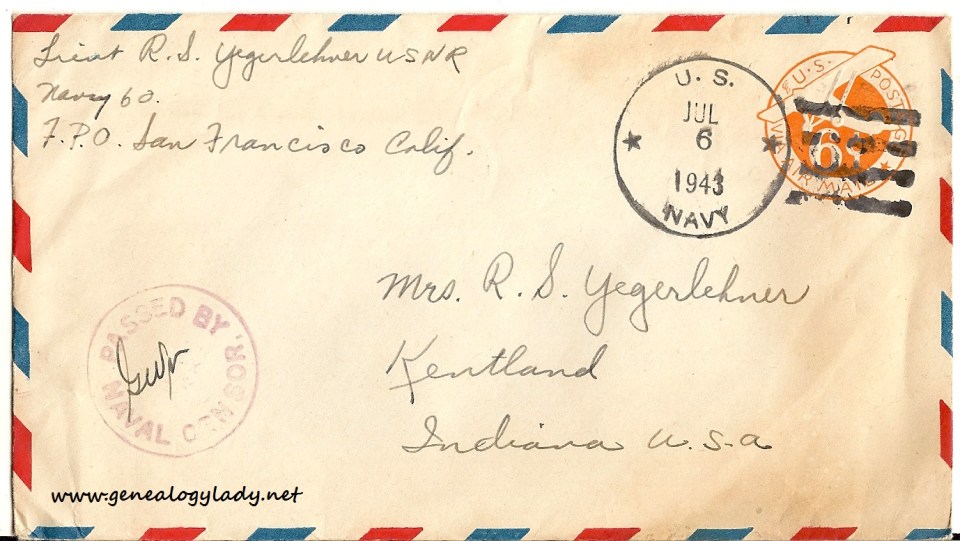 Lieut R. S. Yegerlehner USNR
Navy 60.
F.P.O. San Francisco Calif.
U. S.
JUL
6
1943
NAVY
U.S. POSTAGE
6¢
VIA AIR MAIL
Mrs. R. S. Yegerlehner
Kentland
Indiana U.S.A
PASSED BY
NAVAL CENSOR
www.genealogylady.net